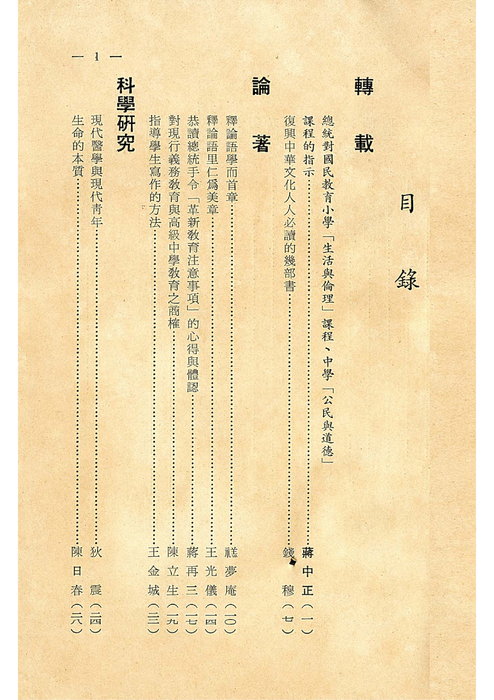 目錄
轉載
總統對國民教育小學「生活與倫理」課程、中學「公民與道德」
課程的指示……蔣中正(一)
復興中華文化人人必讀的幾部書……錢穆(七)
論著
釋論語學而首章……糕夢庵(一〇)
釋論語里仁爲美章……王光儀(一四)
恭讀總統手令「革新教育注意事項」的心得與體認……蔣再三(一七)
對現行義務教育與高級中學教育之商榷……陳立生(一九)
指導學生寫作的方法……王金城(二三)
科學研究
現代醫學與現代靑年……狄震(二四)
生命的本質……陳日春(二八)
— 1 —